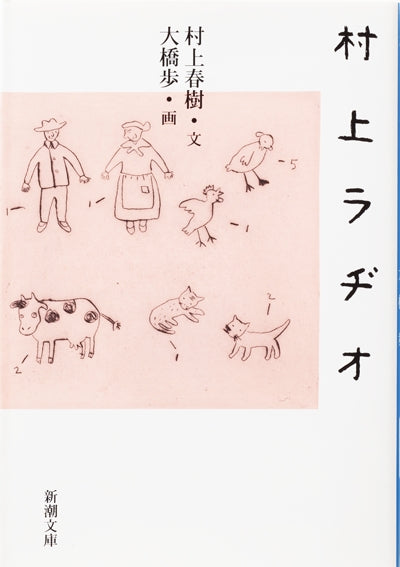 村上ラヂオ
村上春樹・文
大橋歩・画
1
1
5
1
2
1
2
新潮文庫